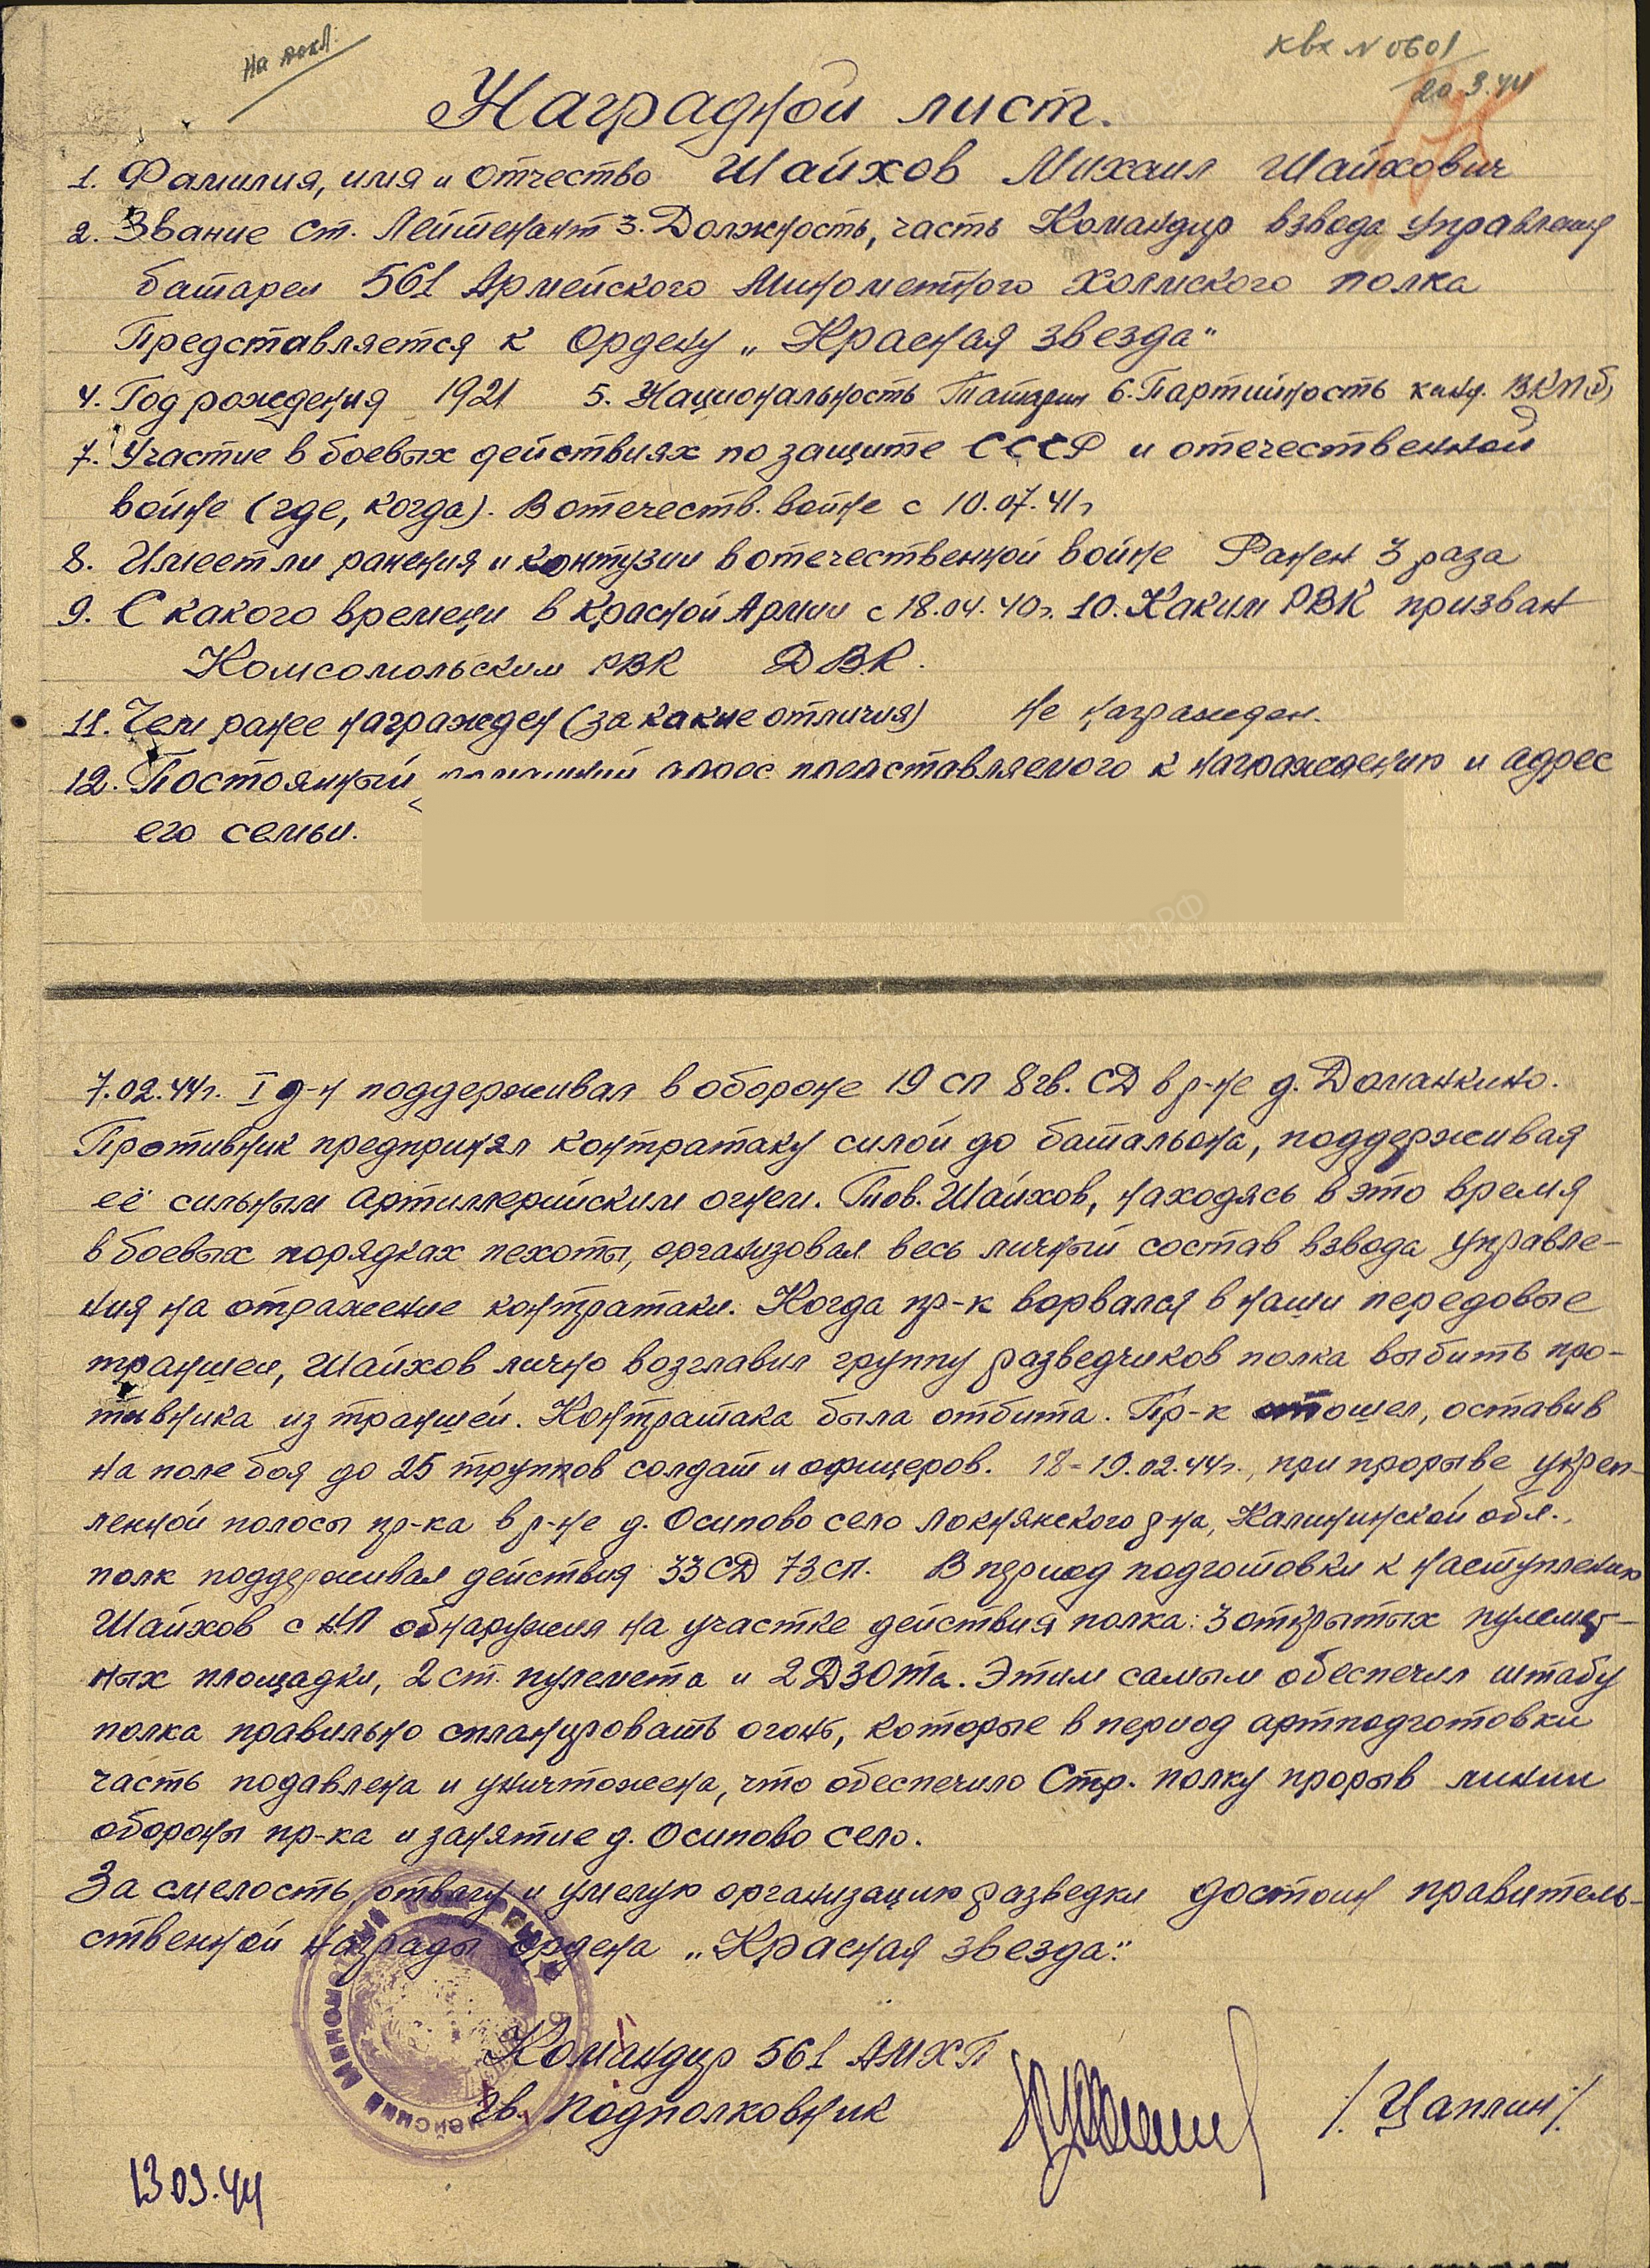 На докл.
Квх N 0601
20.3.44
Наградной лист.
1. Фамилия, имя и отчество Шайхов Михаил Шайхович
2. Звание Ст. Лейтенант 3. Должность, часть Командир взвода управления
батареи 561 Армейского Минометного Холмского полка
Представляется к ордену „Красная звезда"
4. Год рождения 1921 5. Национальность Татарин 6. Партийность канд. ВКП(б)
7. Участие в боевых действиях по защите СССР и отечественной
войне (где, когда). В отечеств. войне с 10.07.41г
8. Имеет ли ранения и контузии в отечественной войне Ранен 3 раза
9. С какого времени в Красной Армии с 18.04.40г. 10. Каким РВК призван
Комсомольским РВК ДВК.
11. Чем ранее награжден (за какие отличия) Не награжден.
12. Постоянный домашний адрес представляемого к награждению и адрес
его семьи.
7.02.44г. I д-н поддерживал в обороне 19 СП 8гв. СД в р-не д. Доманкино.
Противник предпринял контратаку силой до батальона, поддерживая
её сильным артиллерийским огнем. Тов. Шайхов, находясь в это время
в боевых порядках пехоты, организовал весь личный состав взвода управле-
ния на отражение контратаки. Когда пр-к ворвался в наши передовые
траншеи, Шайхов лично возглавил группу разведчиков полка выбить про-
тивника из траншей. Контратака была отбита. Пр-к отошел, оставив
на поле боя до 25 трупов солдат и офицеров. 18-19.02.44г., при прорыве укреп-
ленной полосы пр-ка в р-не д. Осипово село Локнянского р-на, Калининской обл.,
полк поддерживал действия 33 СД 73 СП. В период подготовки к наступлению
Шайхов с НП обнаружил на участке действия полка: 3 открытых пулемет-
ных площадки, 2 ст. пулемета и 2 ДЗОТа. Этим самым обеспечил штабу
полка правильно спланировать огонь, которые в период артподготовки
часть подавлена и уничтожена, что обеспечило Стр. полку прорыв линии
обороны пр-ка и занятие д. Осипово село.
За смелость отвагу и умелую организацию разведки достоин правитель-
ственной награды ордена „Красная звезда".
Командир 561 АМХП
Гв. Подполковник /Цаплин/
13.03.44